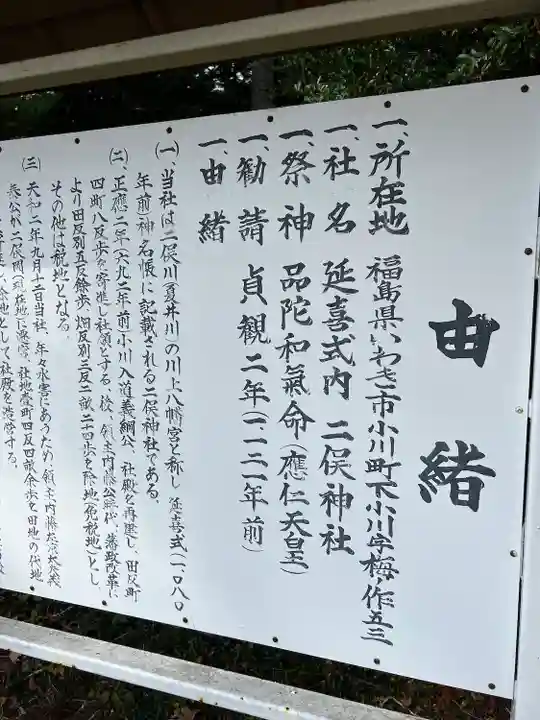 由緒
一、所在地 福島県いわき市小川町下小川字梅ノ作五三
一、社名 延喜式内 二俣神社
一、祭神 品陀和氣命(應仁天皇)
一、勧請 貞観二年(一一二一年前)
一、由緒
(一)、当社は二俣川(夏井川)の川上八幡宮と称し延喜式(一、〇八〇
年前)神名帳に記載される二俣神社である。
(二) 正應二年(六九二年前)小川入道義綱公、社殿を再建し、田反町
四町八反歩を寄進し社領とする、後、領主内藤公時代、藩政改革に
より田反別五反餘歩、畑反別三反二畝二十四歩を除地(免税地)とし、
その他は税地となる。
(三) 天和二年九月十二日当社、年々水害にあうため、領主内藤
義公が二俣岡(現在地)に遷宮、社地壹町四反四畝余歩を田地の代地
除地として社殿を造営する。